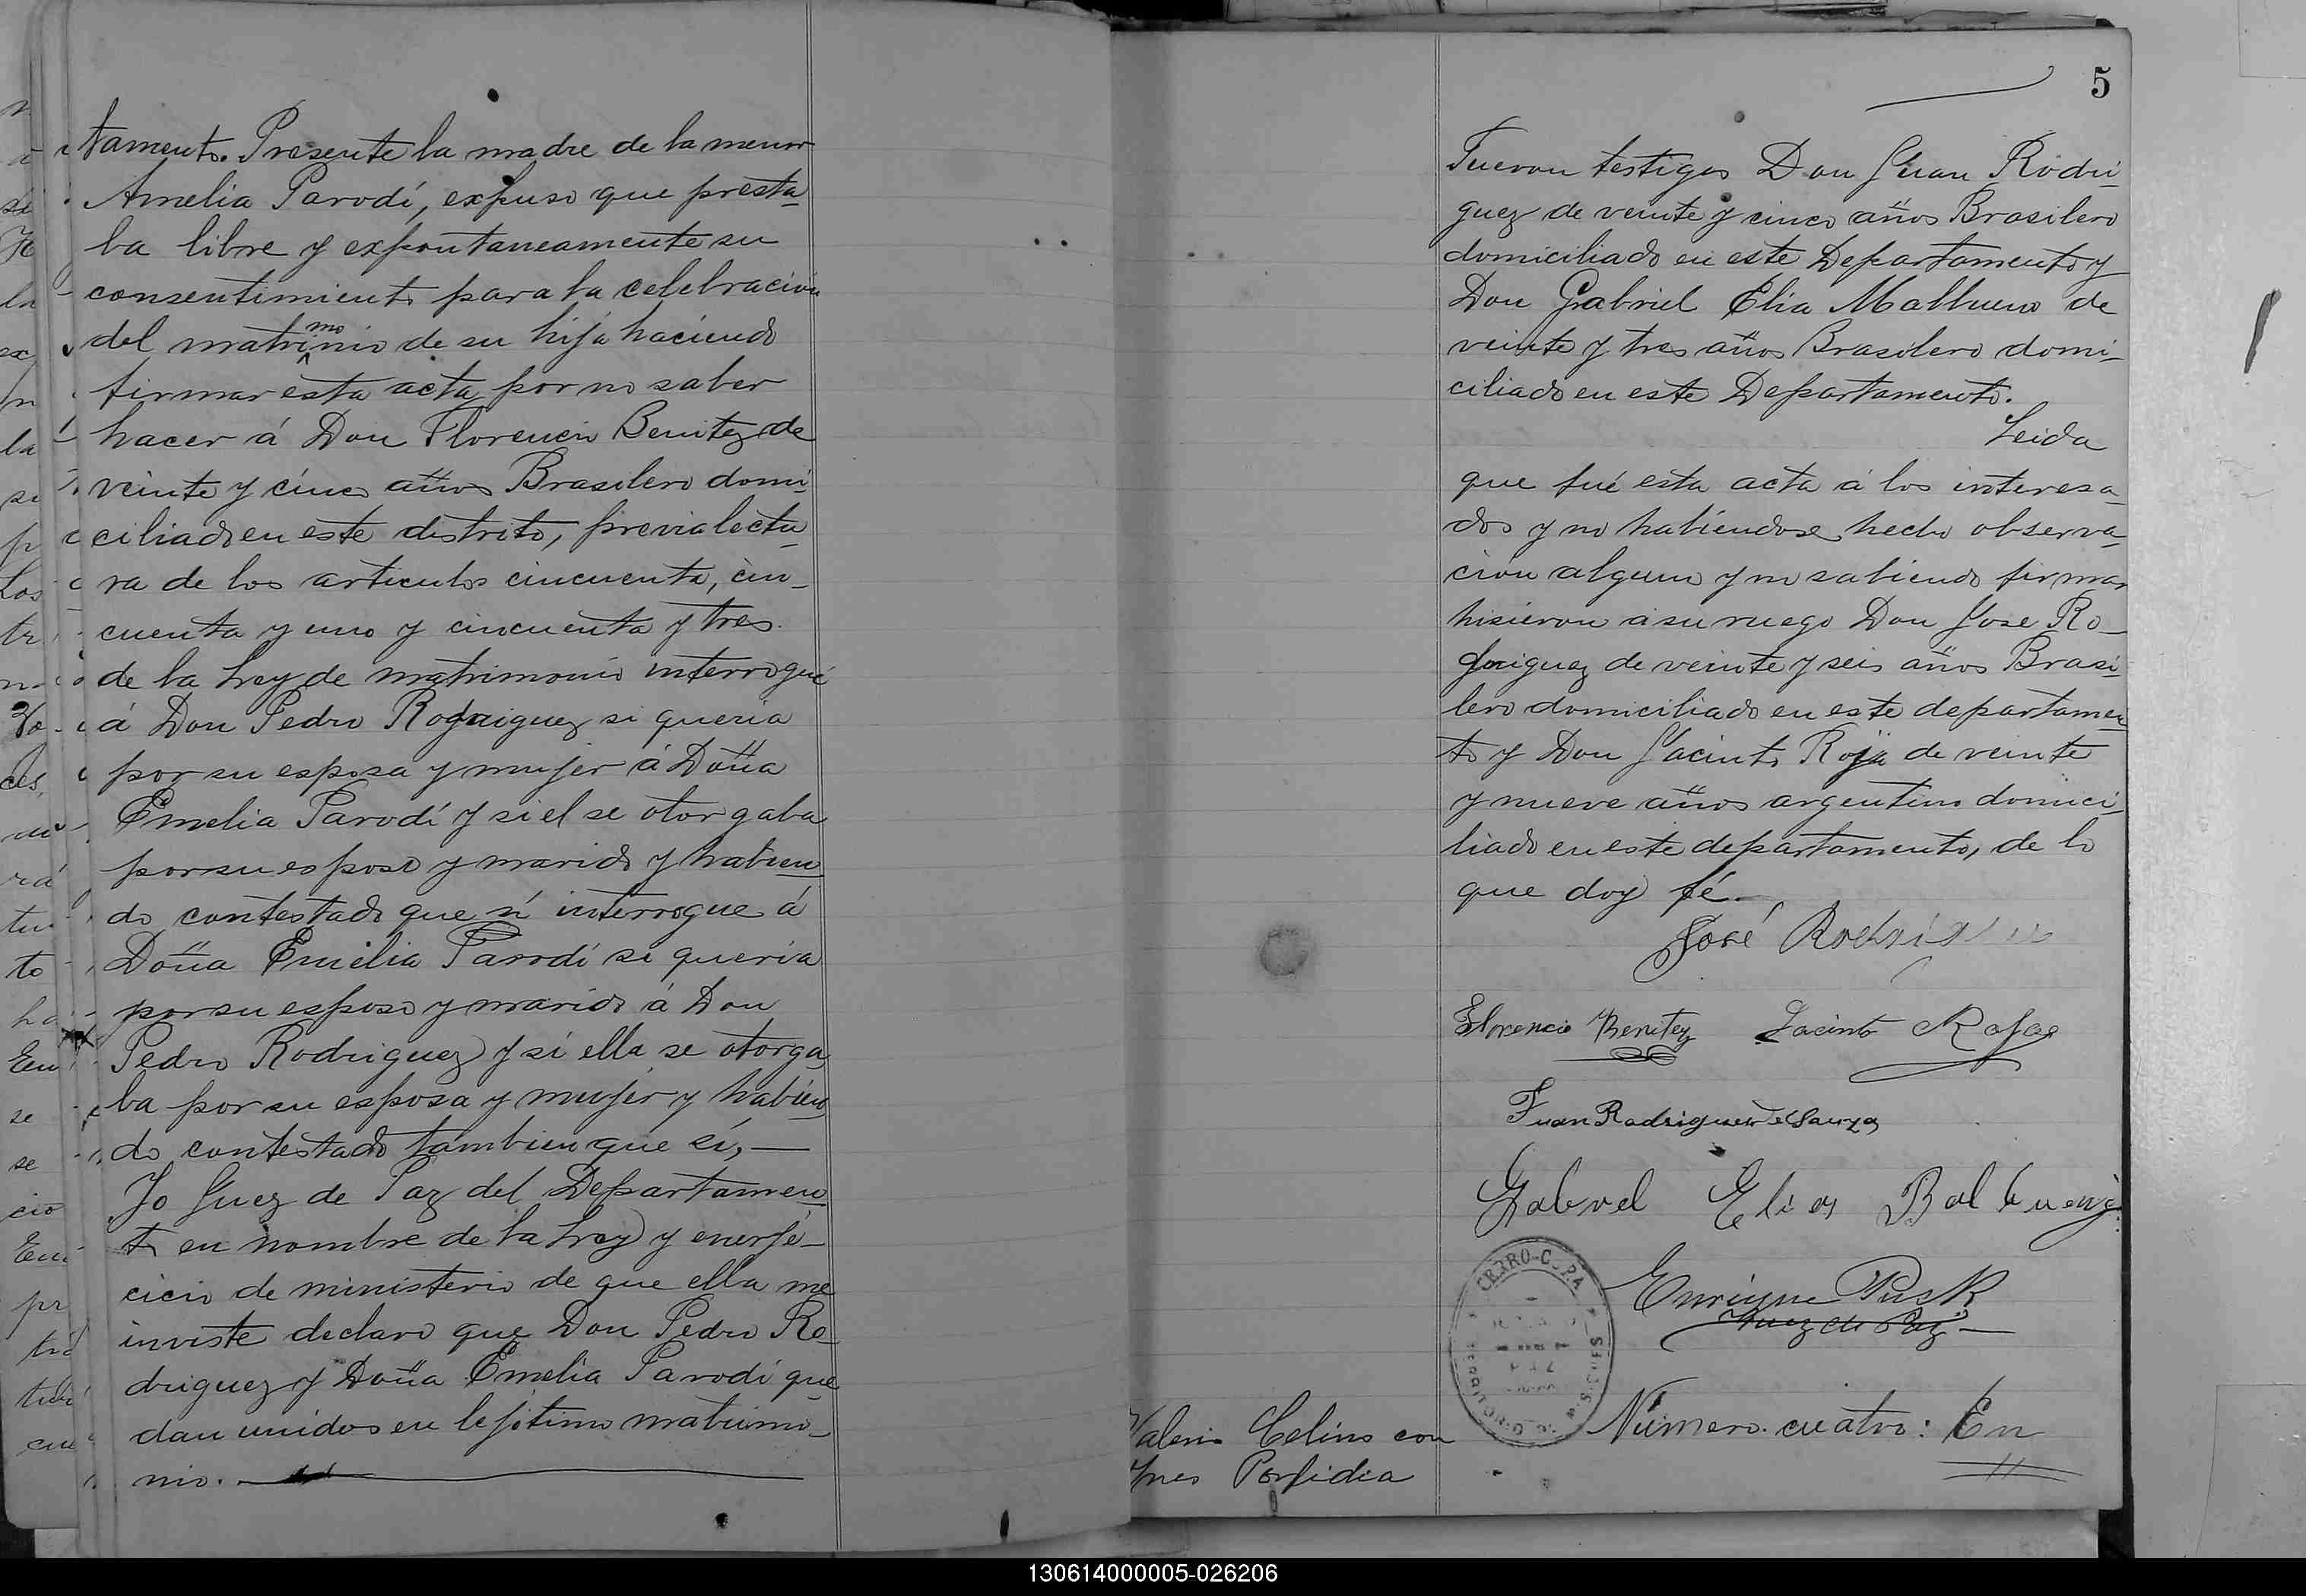 tamento. Presente la madre de la menor
Amelia Parodí, expuso que presta-
ba libre y expontaneamente su
consentimiento para la celebración
del matrimonio de su hija haciendo
firmar esta acta por no saber
hacer á Don Florencio Benitez de
veinte y cinco años Brasilero domi-
ciliado en este distrito, previa lectu-
ra de los articulos cincuenta, cin-
cuenta y uno y cincuenta y tres
de la Ley de matrimonio interrogué
á Don Pedro Rodriguez si queria
por su esposa y mujer á Doña
Emelia Parodí y si el se otorgaba
por su esposo y marido y habien-
do contestado que sí interrogue á
Doña Emelia Parodi si queria
por su esposo y marido á Don
Pedro Rodriguez y si ella se otorga-
ba por su esposa y mujer y habien-
do contestado tambien que sí, —
Yo Juez de Paz del Departamen-
to en nombre de la Ley y enerjé-
cicio de ministerio de que ella me
inviste declaro que Don Pedro Ro-
driguez y Doña Emelia Parodi que-
dan unidos en lejitimo matrimo-
nio.
5
Fueron testigos Don Juan Rodri-
guez de veinte y cinco años Brasilero
domiciliado en este Departamento y
Don Gabriel Elia Malbuena de
veinte y tres años Brasilero domi-
ciliado en este Departamento.
Leida
que fué esta acta á los interesa-
dos y no habiendose hecho observa-
cion alguna y no sabiendo firmar
hisieron a su ruego Don Jose Ro-
driguez de veinte y seis años Brasi-
lero domiciliado en este departamen-
to y Don Jacinto Roja de veinte
y nueve años argentino domici-
liado en este departamento, de lo
que doy fé.
José Rodriguez
Florencio Benitez Jacinto Rojas
Juan Rodriguez Souza
Gabrel Elias Balbuena
Enrique Pusk
Juez de Paz
CERRO-CORA
Valerio Celino con
Ynes Porfidia
Número cuatro: En
130614000005-026206